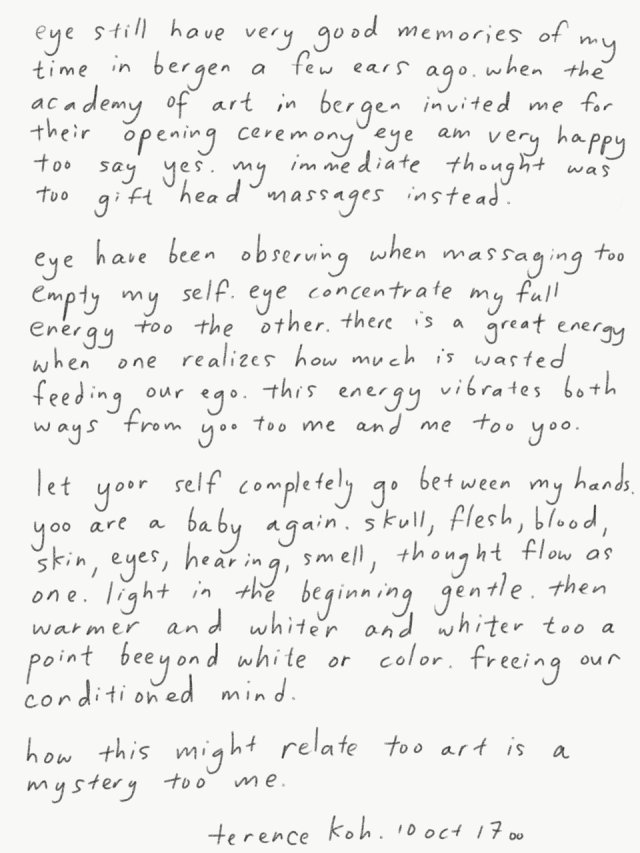 eye still have very good memories of my
time in bergen a few ears ago. when the
academy of art in bergen invited me for
their opening ceremony eye am very happy
too say yes. my immediate thought was
too gift head massages instead.
eye have been observing when massaging too
empty my self. eye concentrate my full
energy too the other. there is a great energy
when one realizes how much is wasted
feeding our ego. this energy vibrates both
ways from yoo too me and me too yoo.
let yoor self completely go between my hands.
yoo are a baby again. skull, flesh, blood,
skin, eyes, hearing, smell, thought flow as
one. light in the beginning gentle. then
warmer and whiter and whiter too a
point beeyond white or color. freeing our
conditioned mind.
how this might relate too art is a
mystery too me.
terence koh. 10 oct 17∞